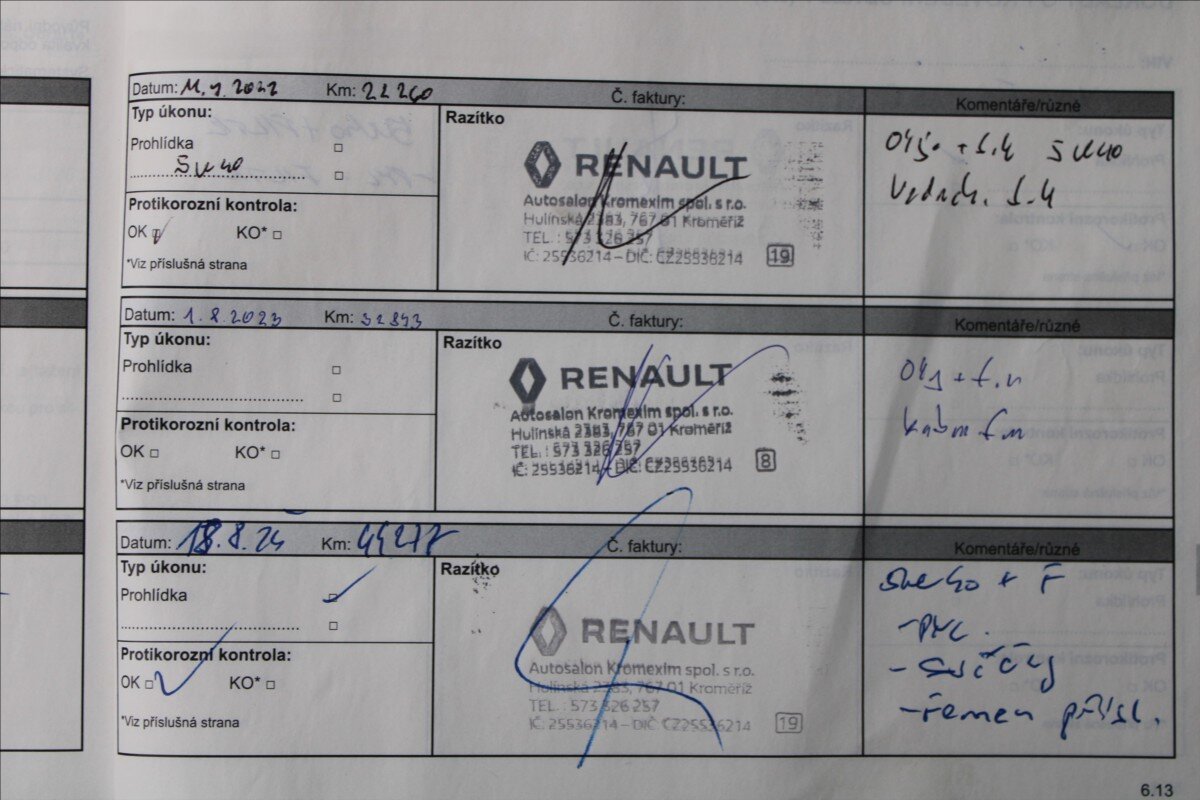 Datum: 11.7.2022 Km: 22260 Č. faktury: Komentáře/různé
Typ úkonu:
Razítko
Prohlídka □
□
Protikorozní kontrola:
OK □ KO* □
*Viz příslušná strana
RENAULT
Autosalon Kromexim spol. s r.o.
Hulínská 2383, 767 01 Kroměříž
TEL. : 573 326 257
IČ: 25536214 – DIČ: CZ25536214 19
Datum: 1.8.2023 Km: 32893 Č. faktury: Komentáře/různé
Typ úkonu:
Razítko
Prohlídka □
□
Protikorozní kontrola:
OK □ KO* □
*Viz příslušná strana
RENAULT
Autosalon Kromexim spol. s r.o.
Hulínská 2383, 767 01 Kroměříž
TEL. : 573 326 257
IČ: 25536214 – DIČ: CZ25536214 8
Datum: 18.8.24 Km: 44277 Č. faktury: Komentáře/různé
Typ úkonu:
Razítko
Prohlídka □
□
Protikorozní kontrola:
OK □ KO* □
*Viz příslušná strana
RENAULT
Autosalon Kromexim spol. s r.o.
Hulínská 2383, 767 01 Kroměříž
TEL. : 573 326 257
IČ: 25536214 – DIČ: CZ25536214 19
+ F
- svíčky
- řemen přísl.
6.13